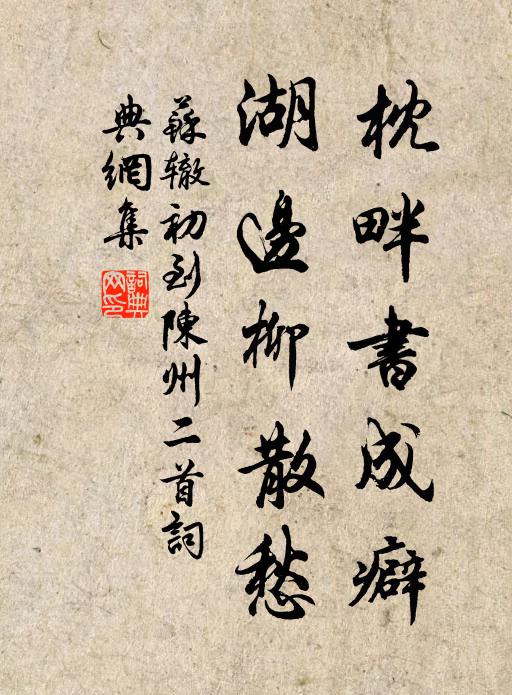 枕畔書成癖
湖邊柳散愁
蘇辙初到陳州二首詞
典網集
詞典
网印